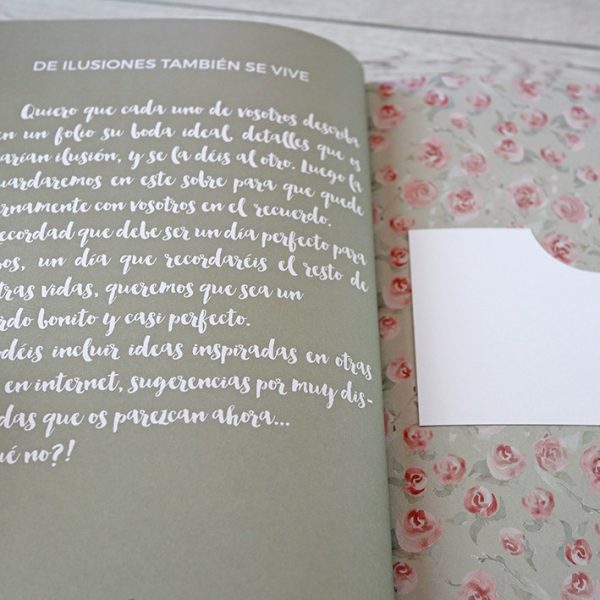 DE ILUSIONES TAMBIÉN SE VIVE
Quiero que cada uno de vosotros describa
en un folio su boda ideal, detalles que os
arían ilusión, y se la déis al otro. Luego la
uardaremos en este sobre para que quede
ernamente con vosotros en el recuerdo.
ecordad que debe ser un día perfecto para
os, un día que recordaréis el resto de
tras vidas, queremos que sea un
rdo bonito y casi perfecto.
déis incluir ideas inspiradas en otras
en internet, sugerencias por muy dis-
das que os parezcan ahora...
ué no?!